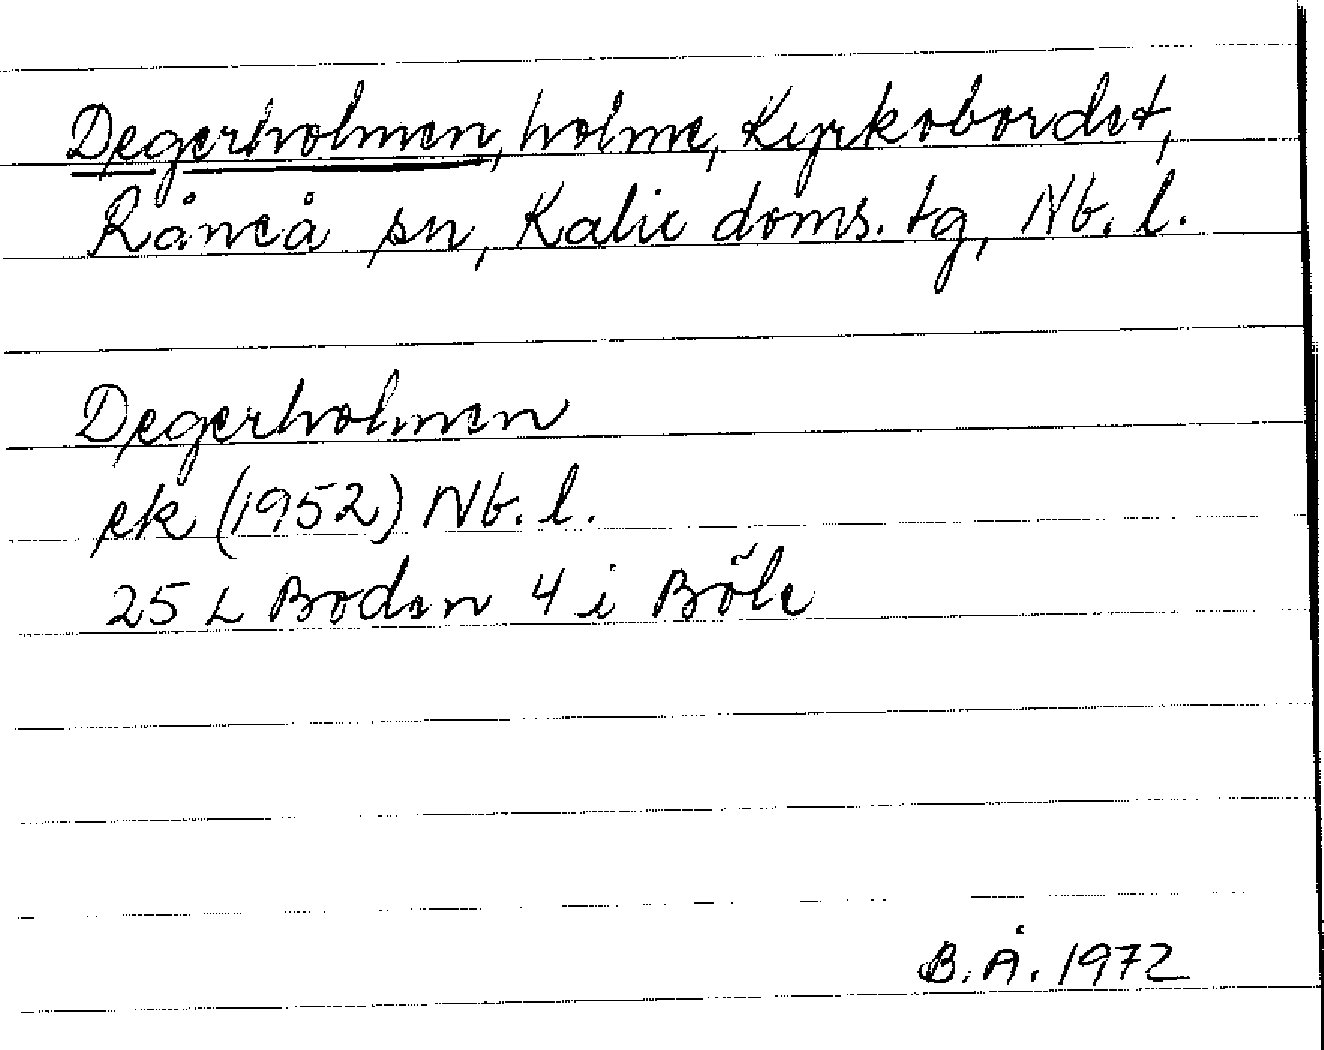 Degerholmen, holme, Kyrkobordet,
Råneå sn, Kalix doms. tg, Nb. l.
Degerholmen
ek (1952) Nb. l.
25 L Boden 4 i Böle
B. Å. 1972